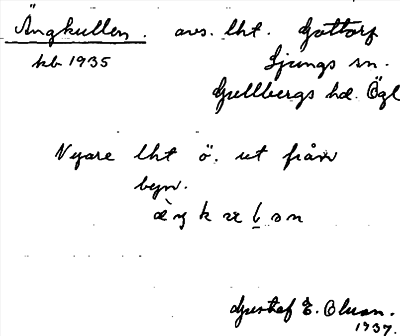 Ängkullen. avs. lht. Gottorp
kb 1935 Ljungs sn.
Gullbergs hd. Ögl
Nyare lht ö. ut från
byn.
Gustaf E. Olson.
1937.